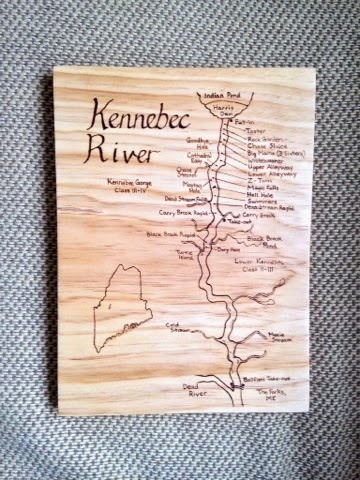 Kennebec
River
Kennebec Gorge
Class III-IV
Indian Pond
Harris
Dam
Put-in
Taster
Rock Garden
Chase Sluice
Big Mama (3 Sisters)
Whitewasher
Upper Alleyway
Lower Alleyway
Z-Turn
Magic Falls
Hell Hole
Swimmers
Dead Stream Rapid
Goodbye
Hole
Cathedral
Eddy
Chase
Stream
Maytag
Hole
Dead Stream Falls
Carry Brook Rapid
Carry Brook
Take-out
Black Brook Rapid
Black Brook
Pond
Turtle
Island
Dory Hole
Lower Kennebec
Class II-III
Cold
Stream
Moxie
Stream
Ballfield Take-out
Dead
River
The Forks,
ME